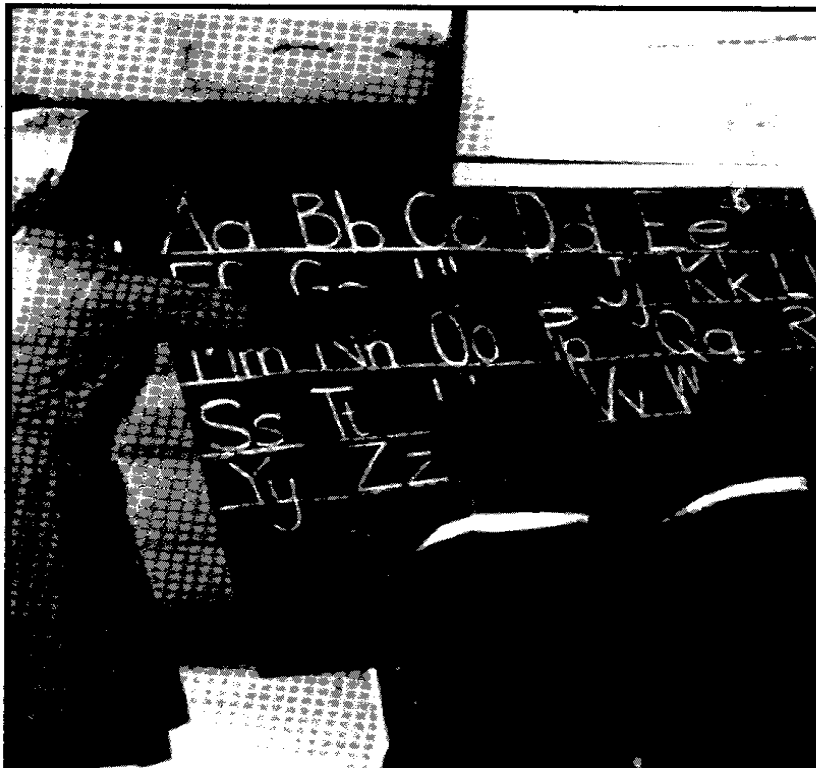 Aa Bb Cc Dd Ee
Jj Kk
Nn Oo Pp Qq
Ss Tt Vv W
Yy Zz